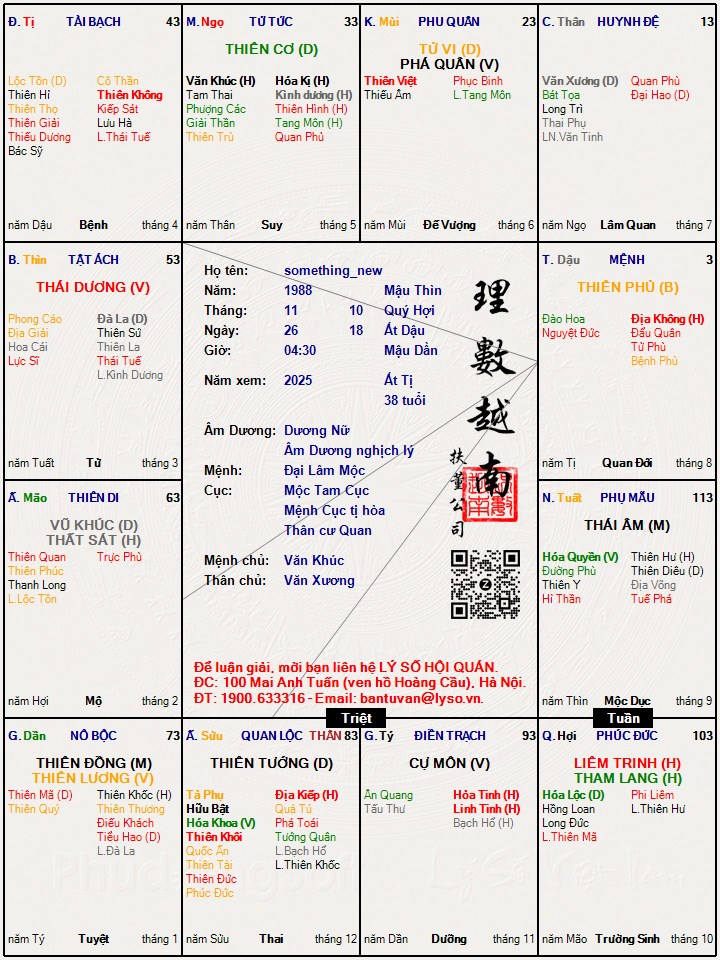 Đ. Tị TÀI BẠCH 43
Lộc Tồn (D) Cô Thần
Thiên Hỉ Thiên Không
Thiên Thọ Kiếp Sát
Thiên Giải Lưu Hà
Thiếu Dương L.Thái Tuế
Bác Sỹ
năm Dậu Bệnh tháng 4
M. Ngọ TỬ TỨC 33
THIÊN CƠ (D)
Văn Khúc (H) Hóa Kị (H)
Tam Thai Kình dương (H)
Phượng Các Thiên Hình (H)
Giải Thần Tang Môn (H)
Thiên Trù Quan Phủ
năm Thân Suy tháng 5
K. Mùi PHU QUÂN 23
TỬ VI (D)
PHÁ QUÂN (V)
Thiên Việt Phục Binh
Thiếu Âm L.Tang Môn
năm Mùi Đế Vượng tháng 6
C. Thân HUYNH ĐỆ 13
Văn Xương (D) Quan Phù
Bát Tọa Đại Hao (D)
Long Trì
Thai Phụ
LN.Văn Tinh
năm Ngọ Lâm Quan tháng 7
B. Thìn TẬT ÁCH 53
THÁI DƯƠNG (V)
Phong Cáo Đà La (D)
Địa Giải Thiên Sứ
Hoa Cái Thiên La
Lực Sĩ Thái Tuế
L.Kình Dương
năm Tuất Tử tháng 3
Họ tên: something_new
Năm: 1988 Mậu Thìn
Tháng: 11 10 Quý Hợi
Ngày: 26 18 Ất Dậu
Giờ: 04:30 Mậu Dần
Năm xem: 2025 Ất Tị
38 tuổi
Âm Dương: Dương Nữ
Âm Dương nghịch lý
Mệnh: Đại Lâm Mộc
Cục: Mộc Tam Cục
Mệnh Cục tị hòa
Thân cư Quan
Mệnh chủ: Văn Khúc
Thân chủ: Văn Xương
理數越南
扶董公司
Để luận giải, mời bạn liên hệ LÝ SỐ HỘI QUÁN.
ĐC: 100 Mai Anh Tuấn (ven hồ Hoàng Cầu), Hà Nội.
ĐT: 1900.633316 - Email: bantuvan@lyso.vn.
T. Dậu MỆNH 3
THIÊN PHỦ (B)
Đào Hoa Địa Không (H)
Nguyệt Đức Đẩu Quân
Tử Phù
Bệnh Phù
năm Tị Quan Đới tháng 8
Ấ. Mão THIÊN DI 63
VŨ KHÚC (D)
THẤT SÁT (H)
Thiên Quan Trực Phù
Thiên Phúc
Thanh Long
L.Lộc Tồn
năm Hợi Mộ tháng 2
N. Tuất PHỤ MẪU 113
THÁI ÂM (M)
Hóa Quyền (V) Thiên Hư (H)
Đường Phù Thiên Diêu (D)
Thiên Y Địa Võng
Hỉ Thần Tuế Phá
năm Thìn Mộc Dục tháng 9
Triệt
Tuần
G. Dần NÔ BỘC 73
THIÊN ĐỒNG (M)
THIÊN LƯƠNG (V)
Thiên Mã (D) Thiên Khốc (H)
Thiên Quý Thiên Thương
Điếu Khách
Tiểu Hao (D)
L.Đà La
năm Tý Tuyệt tháng 1
Ấ. Sửu QUAN LỘC THÂN 83
THIÊN TƯỚNG (D)
Tả Phụ Địa Kiếp (H)
Hữu Bật Quả Tú
Hóa Khoa (V) Phá Toái
Thiên Khôi Tướng Quân
Quốc Ấn L.Bạch Hổ
Thiên Tài L.Thiên Khốc
Thiên Đức
Phúc Đức
năm Sửu Thai tháng 12
G. Tý ĐIỀN TRẠCH 93
CỰ MÔN (V)
Ân Quang Hỏa Tinh (H)
Tấu Thư Linh Tinh (H)
Bạch Hổ (H)
năm Dần Dưỡng tháng 11
Q. Hợi PHÚC ĐỨC 103
LIÊM TRINH (H)
THAM LANG (H)
Hóa Lộc (D) Phi Liêm
Hồng Loan L.Thiên Hư
Long Đức
L.Thiên Mã
năm Mão Trường Sinh tháng 10